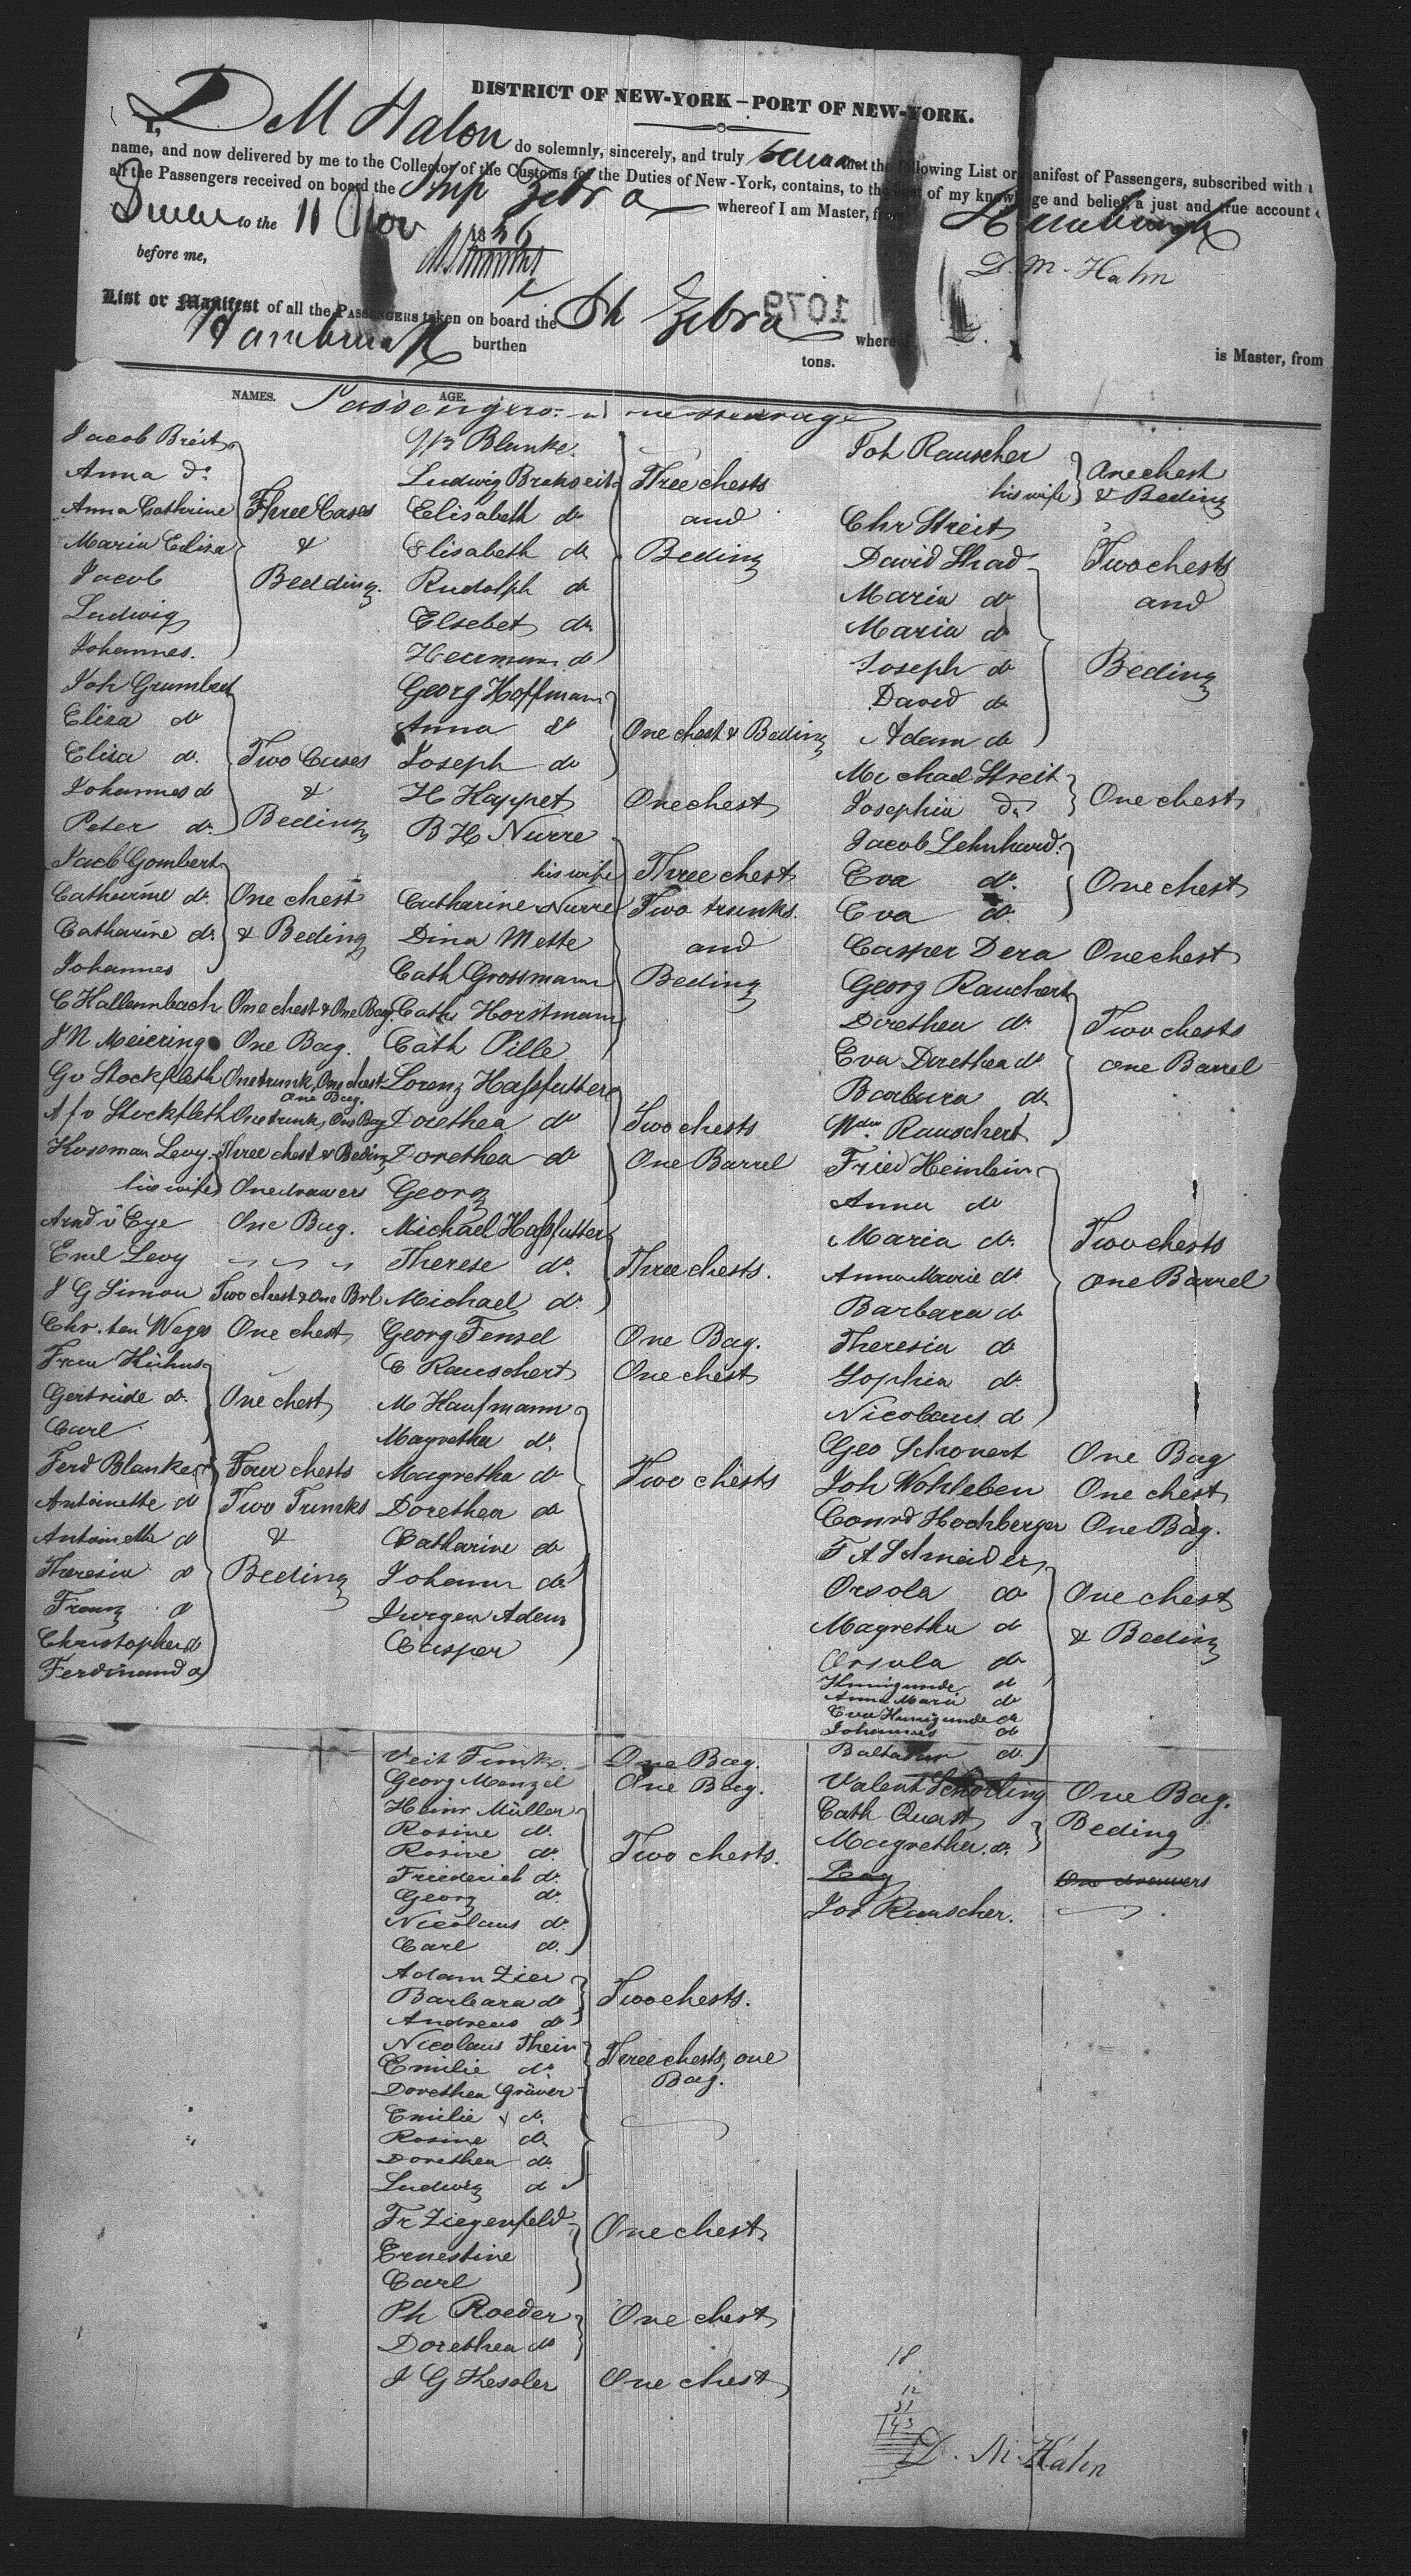 DISTRICT OF NEW-YORK – PORT OF NEW-YORK.
I, D M Halon do solemnly, sincerely, and truly that the following List or Manifest of Passengers, subscribed with
name, and now delivered by me to the Collector of the Customs for the Duties of New-York, contains, to the best of my knowledge and belief, a just and true account
all the Passengers received on board the Ship Zebra whereof I am Master, from Hamburgh
to the 11 Nov 1836
D. M. Hahn
before me,
List or Manifest of all the PASSENGERS taken on board the Sh Zebra whereof
1079
is Master, from
Hamburgh burthen tons.
NAMES. AGE.
Passengers
Jacob Breit
Anna do
Anna Cathrine Three Cases
Maria Eliza &
Jacob Bedding.
Ludwig
Johannes.
Joh Grumbert
Eliza do
Eliza do. Two Cases
Johannes do &
Peter do. Beding
Jacb Gombert
Catharine do. One chest
Catharine do & Beding
Johannes
C Hallennbach One chest & One Bag.
J N Meiering One Bag.
Gv Stockfleth One trunk, One chest
One Bag.
A f v Stockfleth One trunk, One Bag
Hoseman Levy Three chest & Beding
his wife One drawers
Arnd v Eye One Bag.
Emil Levy " " "
J G Simon Two chest & One Brl
Chr. ten Weges One chest
Frau Kuhns
Gertruide do. One chest
Carl
Ferd Blanke Four chests
Antoinette do Two Trunks
Antoinette do &
Theresia do Beding
Franz do
Christopher do
Ferdinand do
Blanke
Ludwig Brakseit Three chests
Elisabeth do and
Elisabeth do Beding
Rudolph do
Elsebet do
Herrmann do
Georg Hoffmann
Anna do One chest & Beding
Joseph do
H Happet One chest
B H Nurre
his wife Three chest
Catharine Nurre Two trunks.
Dina Mette and
Cath Grossmann Beding
Cath Horstmann
Cath Pille
Lorenz Haßfutter
Dorethea do Two chests
Dorethea do One Barrel
Georg
Michael Haßfutter
Therese do. Three chests.
Michael do.
Georg Fensel One Bag.
C Rauschert One chest
M Haufmann
Magretha do.
Magretha do Two chests
Dorethea do
Catharine do
Johann do
Jurgen Adam
Casper
Veit Funk One Bag.
Georg Menzel One Bag.
Heinr Müller
Rosine do.
Rosine do. Two chests.
Friederich do.
Georg do.
Nicolaus do.
Carl do.
Adam Zier
Barbara do Two chests.
Andreas do
Nicolaus Thein Three chests, one
Emilie do. Bag.
Dorethea Gräver
Emilie do.
Rosine do.
Dorethea do.
Ludwig do
Fr Ziegenfeld One chest
Ernestine
Carl
Ph Roeder One chest
Dorethea do
J G Hessler One chest
Joh Rauscher One chest
his wife & Beding
Chr Streit
David Shad Two chests
Maria do and
Maria do
Joseph do Beding
David do
Adam do
Michael Streit
Josephia do One chest
Jacob Lehnhard.
Eva do. One chest
Eva do.
Casper Dera One chest
Georg Rauchert
Dorethea do Two chests
Eva Dorethea do One Barrel
Barbara do
Rauschert
Fried Heinlein
Anna do
Maria do. Two chests
Anna Marie do One Barrel
Barbara do
Theresia do
Sophia do.
Nicolaus do
Geo Schonert One Bag
Joh Wohleben One chest
Conrd Hochberger One Bag.
F A Schneider
Orsola do One chest
Magretha do & Beding
Orsula do
Kunigunde do
Anna Maria do
Eva Kunigunde do
Johannes do
Baltasar do.
Valent Schorling One Bag.
Cath Quast Beding
Magretha do.
Levy One drawers
Jos Rauscher.
18
12
31
143
D. M. Hahn